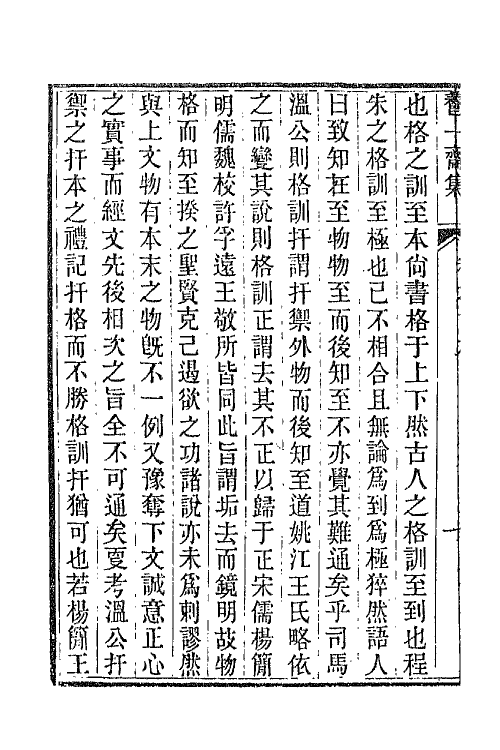 養一齋集
也格之訓至本尙書格于上下然古人之格訓至到也程
朱之格訓至極也已不相合且無論爲到爲極猝然語人
曰致知在至物物至而後知至不亦覺其難通矣乎司馬
溫公則格訓扞謂扞禦外物而後知至道姚江王氏略依
之而變其說則格訓正謂去其不正以歸于正宋儒楊簡
明儒魏校許孚遠王敬所皆同此旨謂垢去而鏡明故物
格而知至揆之聖賢克己遏欲之功諸說亦未爲刺謬然
與上文物有本末之物旣不一例又豫奪下文誠意正心
之實事而經文先後相次之旨全不可通矣夏考溫公扞
禦之扞本之禮記扞格而不勝格訓扞猶可也若楊簡王